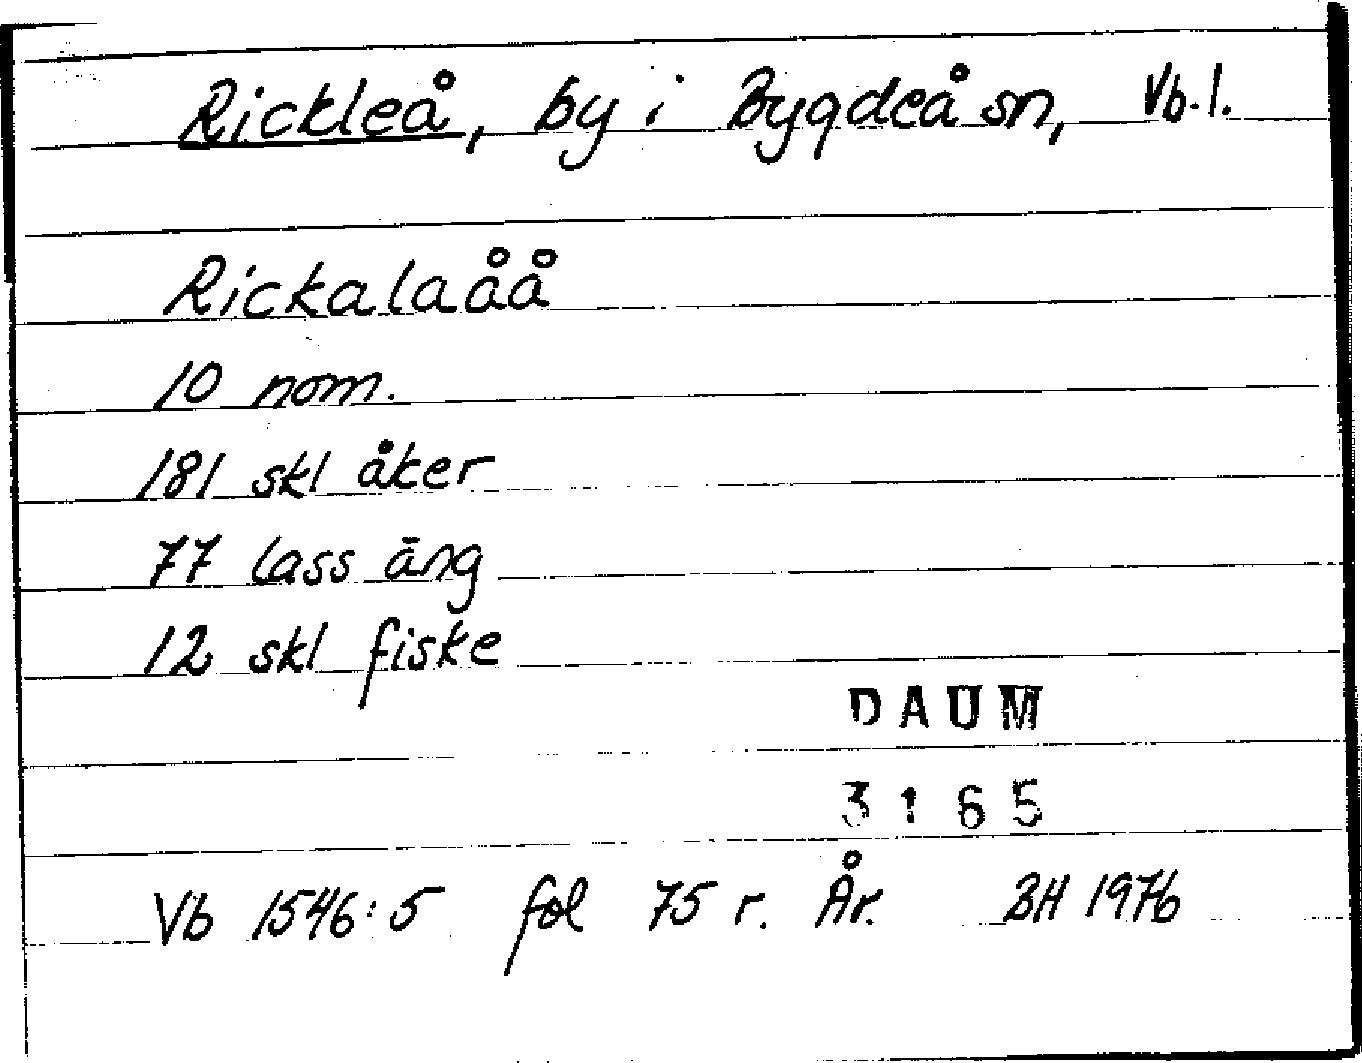 Rickleå, by i Bygdeå sn, Vb. l.
Rickalaåå
10 nom.
181 skl åker
77 lass äng
12 skl fiske
DAUM
3165
Vb 1546:5 fol 75 r. År. BH 1976